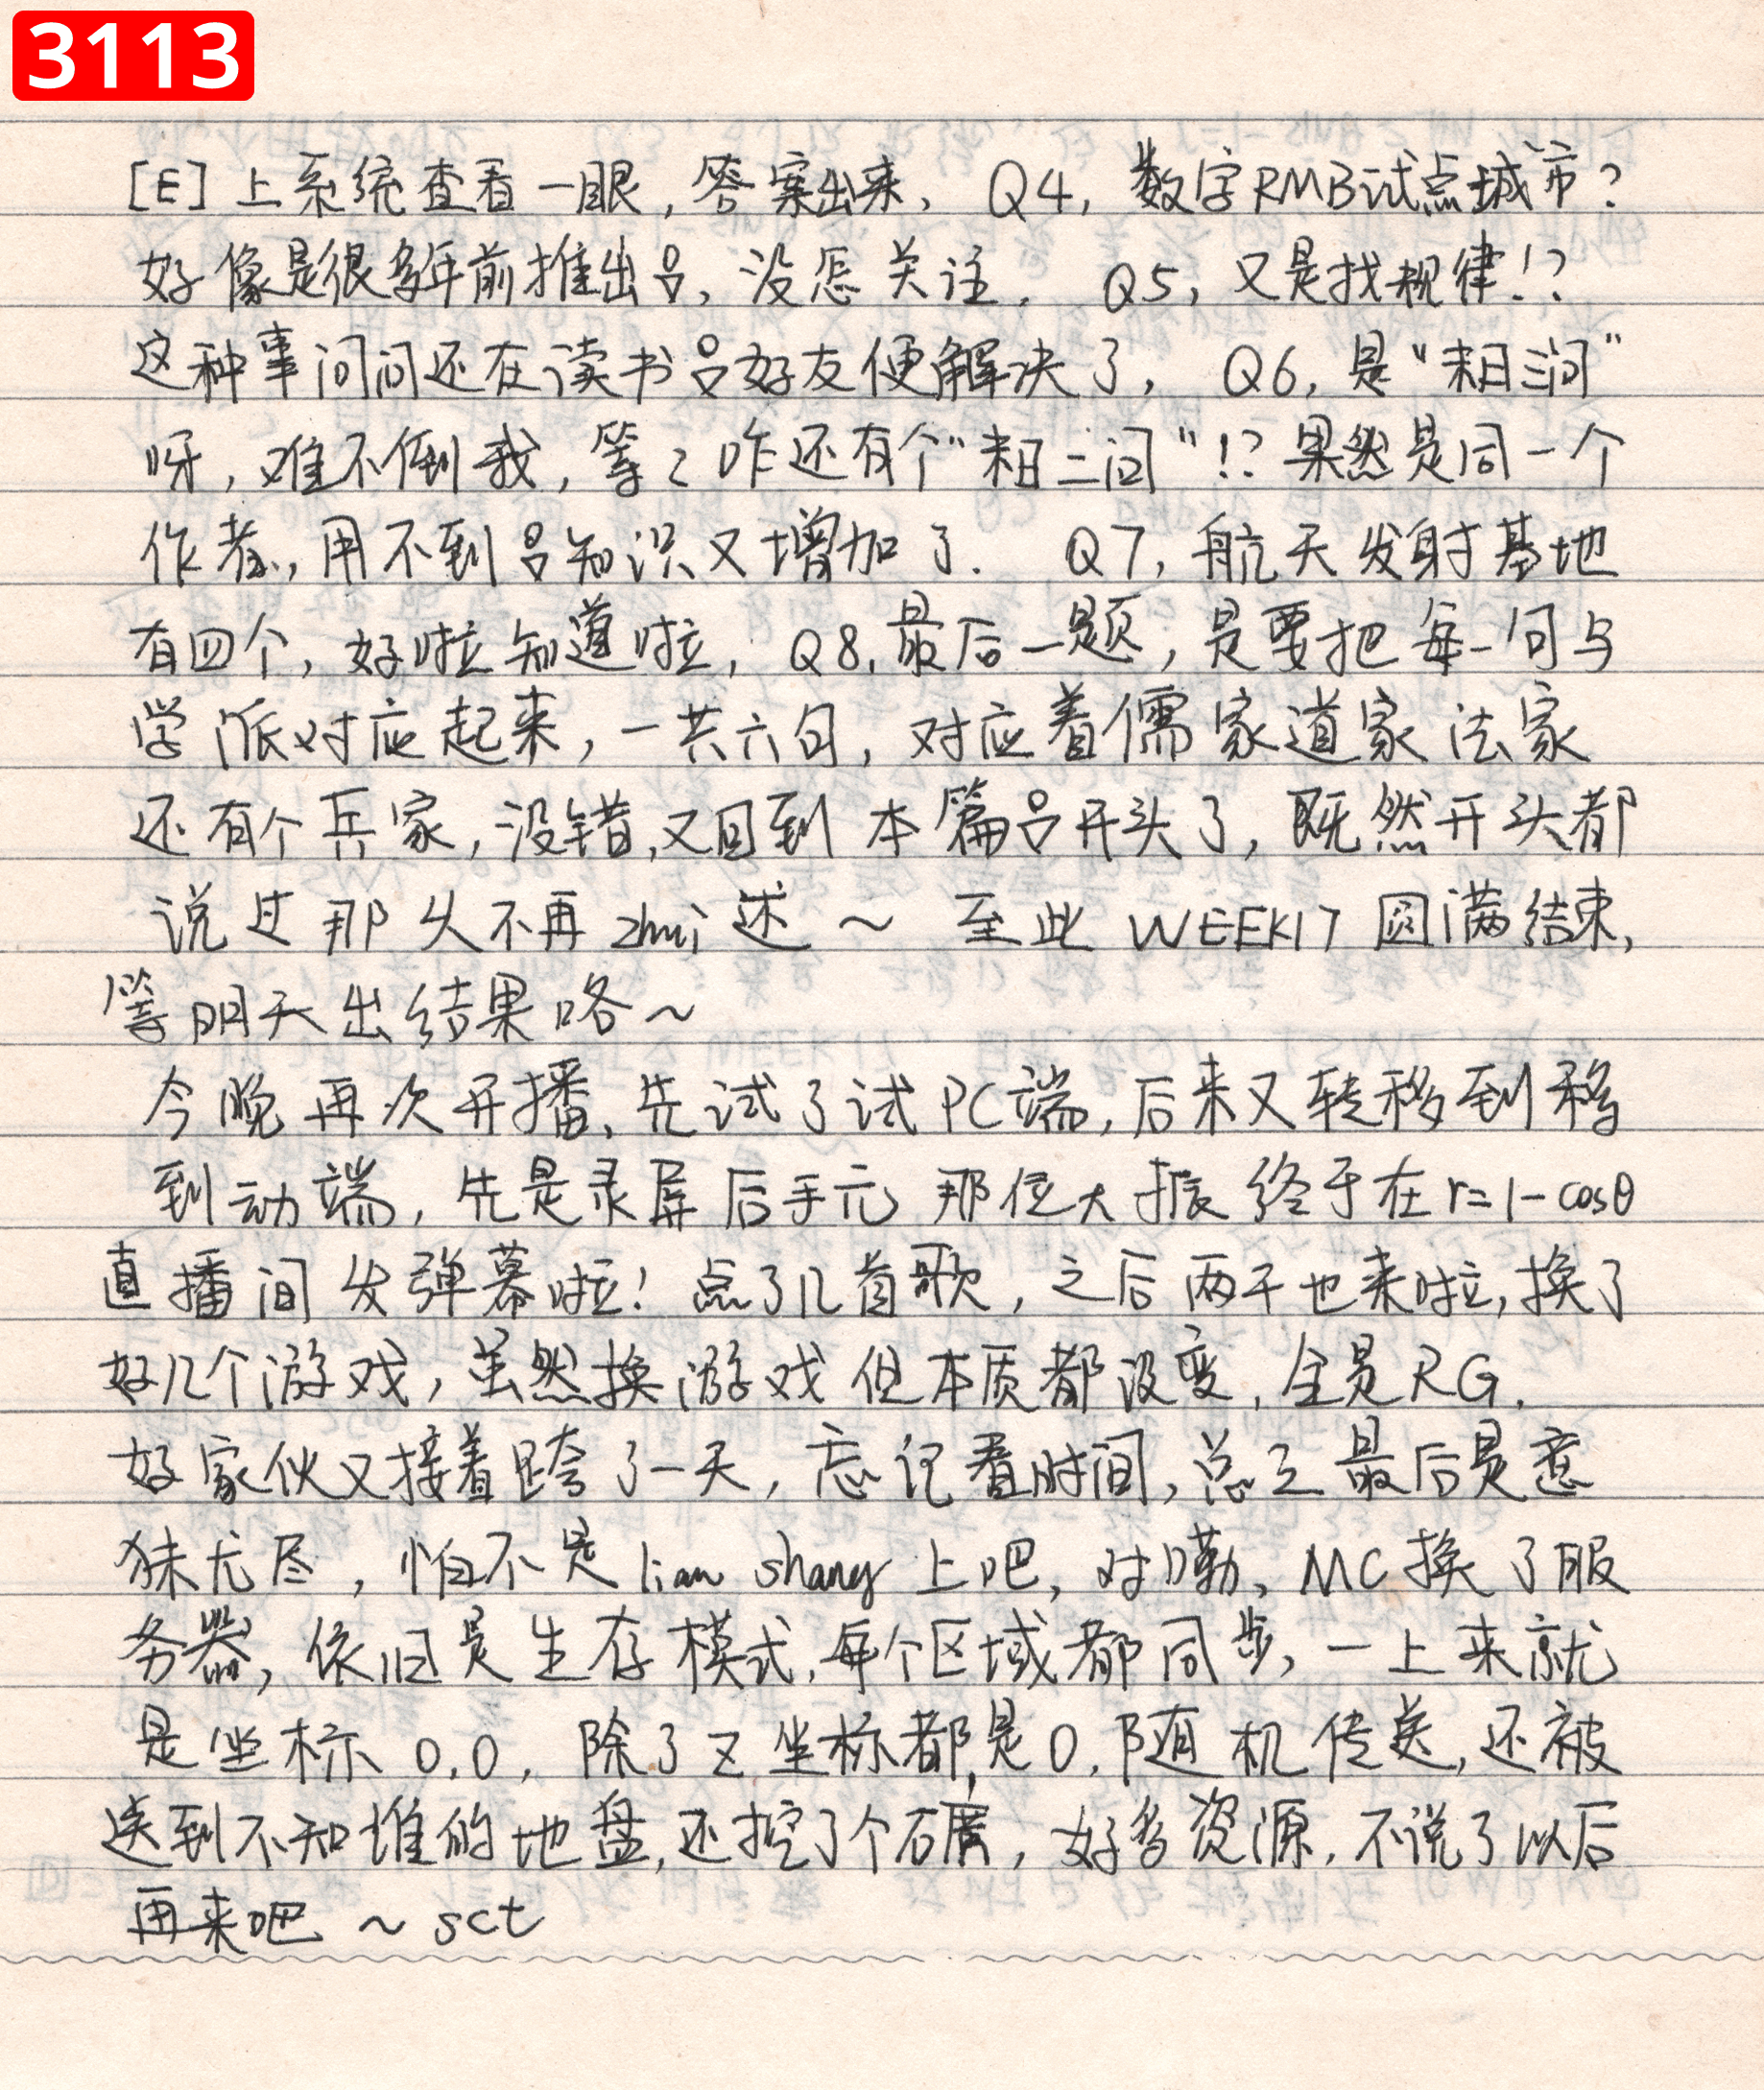 3113
[E]上系统查看一眼,答案出来、Q4,数字RMB试点城市?
好像是很多年前推出吕,没怎关注. Q5,又是找规律!?
这种事问问还在读书吕好友便解决了, Q6,是“耒日三问”
呀,难不倒我,等々咋还有个“耒日二问”!?果然是同一个
作者,用不到吕知识又增加了. Q7,航天发射基地
有四个,好啦知道啦, Q8,最后一题,是要把每一句与
学派对应起来,一共六句,对应着儒家道家法家
还有个兵家,没错,又回到本篇吕开头了,既然开头都
说过那么不再zhui述~ 至此WEEK17圆满结束,
等明天出结果咯~
今晚再次开播、先试了试PC端,后来又转移到移
到动端,先是录屏后手元 那位大振终于在r=1-cosθ
直播间发弹幕啦!点了几首歌,之后两千也来啦,换了
好几个游戏,虽然换游戏但本质都没变,全是RG.
好家伙又接着跨了一天,忘记看时间,总之最后是意
犹尤尽,怕不是lian shang上吧,对嘞,MC换了服
务器,依旧是生存模式,每个区域都同步,一上来就
是坐标0,0,除了Z坐标都是0,随机传送,还被
送到不知谁的地盘,还挖了个石廣,好多资源.不说了以后
再来吧 ~ sct